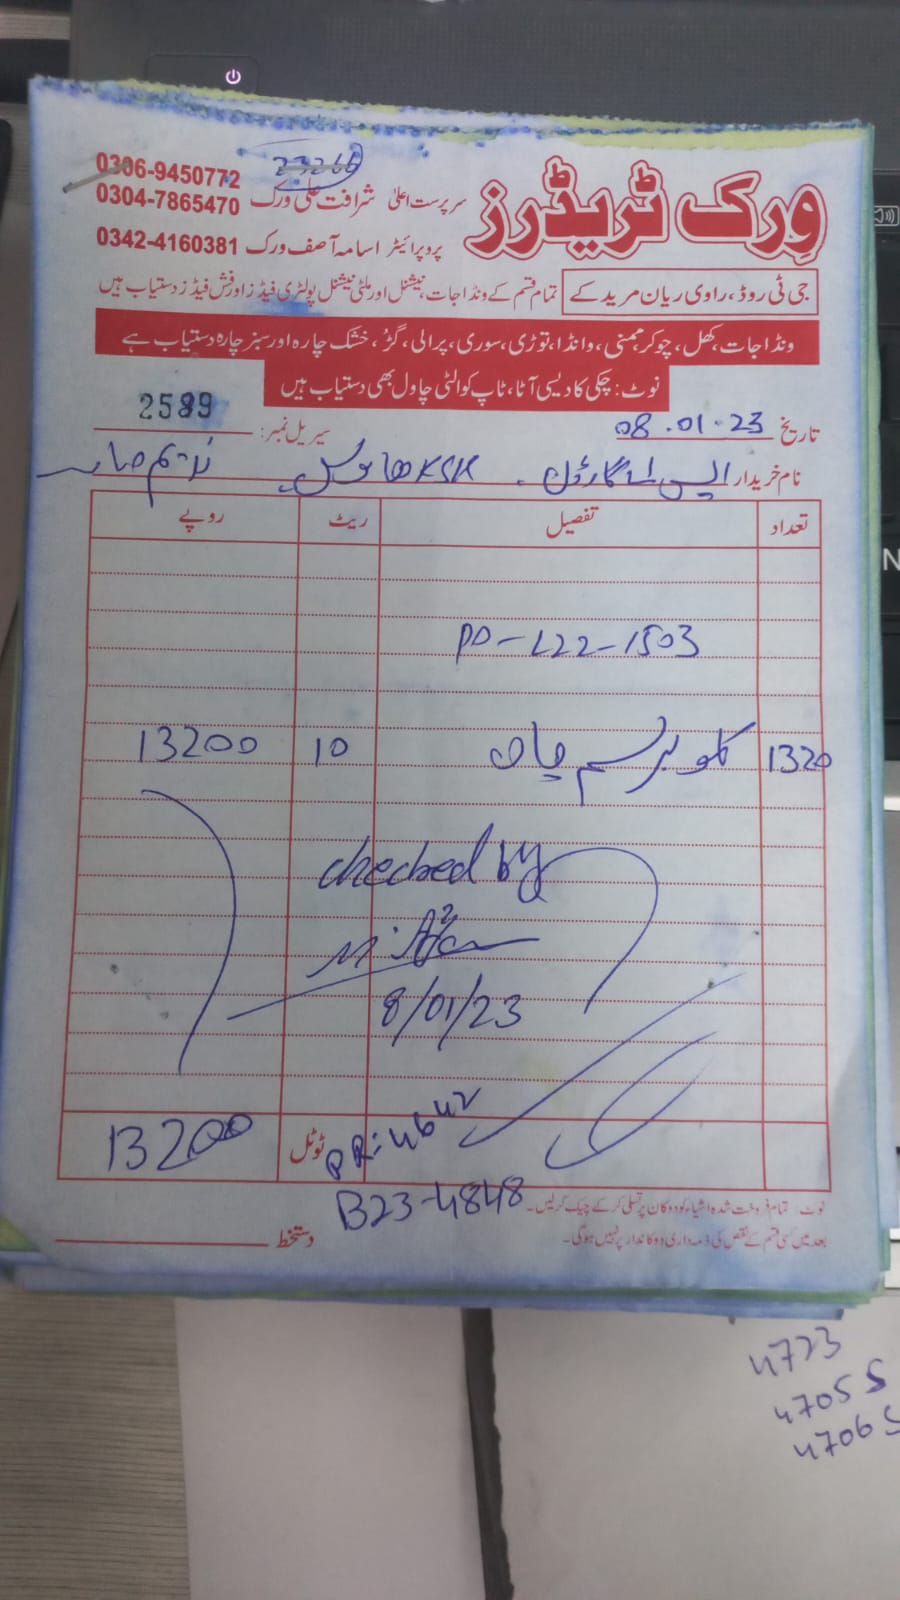 0306-9450772 23266
ورک ٹریڈرز
سرپرست اعلیٰ شرافت علی ورک 0304-7865470
پروپرائیٹر اسامہ آصف ورک 0342-4160381
جی ٹی روڈ، راوی ریان مریدکے
تمام قسم کے ونڈا جات، نیشنل اور ملٹی نیشنل پولٹری فیڈز اور فش فیڈز دستیاب ہیں
ونڈا جات، کھل، چوکر، ممنی، وانڈا، توڑی، سوری، پرالی، گڑ، خشک چارہ اور سبز چارہ دستیاب ہے
نوٹ: چکی کا دیسی آٹا، ٹاپ کوالٹی چاول بھی دستیاب ہیں
تاریخ 08.01.23 سیریل نمبر: 2589
نام خریدار ایس اے گارڈن KSK ندیم صاحب
تعداد تفصیل ریٹ روپے
PO-L22-1503
1320 کلو برسیم 10 13200
checked by
8/01/23
ٹوٹل 13200
PR:4642
B23-4848
نوٹ: تمام فروخت شدہ اشیاء کو دوکان پر تسلی کر کے چیک کر لیں۔
بعد میں کسی قسم کے نقص کی ذمہ داری دوکاندار پر نہیں ہوگی۔
دستخط
4723
4705 S
4706 S